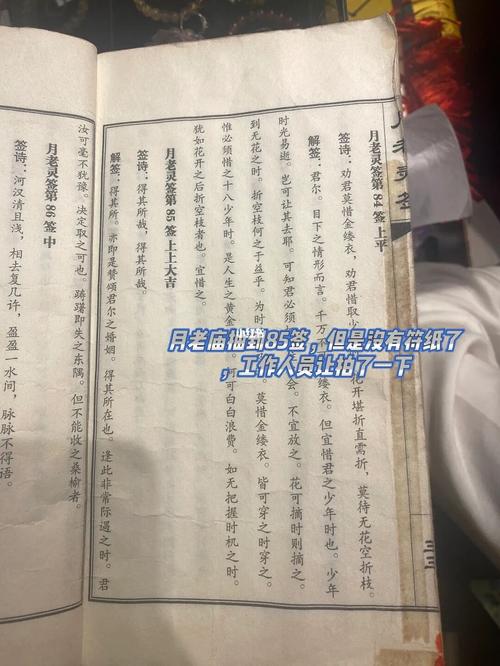 月老灵签
月老灵签第 84 签 上平
签诗：劝君莫惜金缕衣，劝君惜取少 花开堪折直需折，莫待无花空折枝。
解签：君尔。目下之情形而言。千万 缕衣。但宜惜君之少年时也。少年
时光易逝。岂可让其去耶。可知君必须 会。不宜放之。花可摘时则摘之。
到无花之时。折空枝何之于益乎。为时 莫惜金缕衣。皆可穿之时穿之。
惟必须惜之十八少年时。是人生之黄金 何可白白浪费。如无把握时机之时。
犹如花开之后折空枝者也。宜惜之。
月老灵签第 85 签 上上大吉
签诗：得其所哉，得其所哉。
解签：得其所。亦即是赞颂君尔之婚姻。得其所在也。逢此非常际遇之时。君
汝可毫不犹豫。决定取之可也。踌躇即失之东隅。但不能收之桑榆者。
月老灵签第 86 签 中
签诗：河汉清且浅，相去复几许，盈盈一水间，脉脉不得语。
月老庙抽到85签，但是没有符纸了
，工作人员让拍了一下